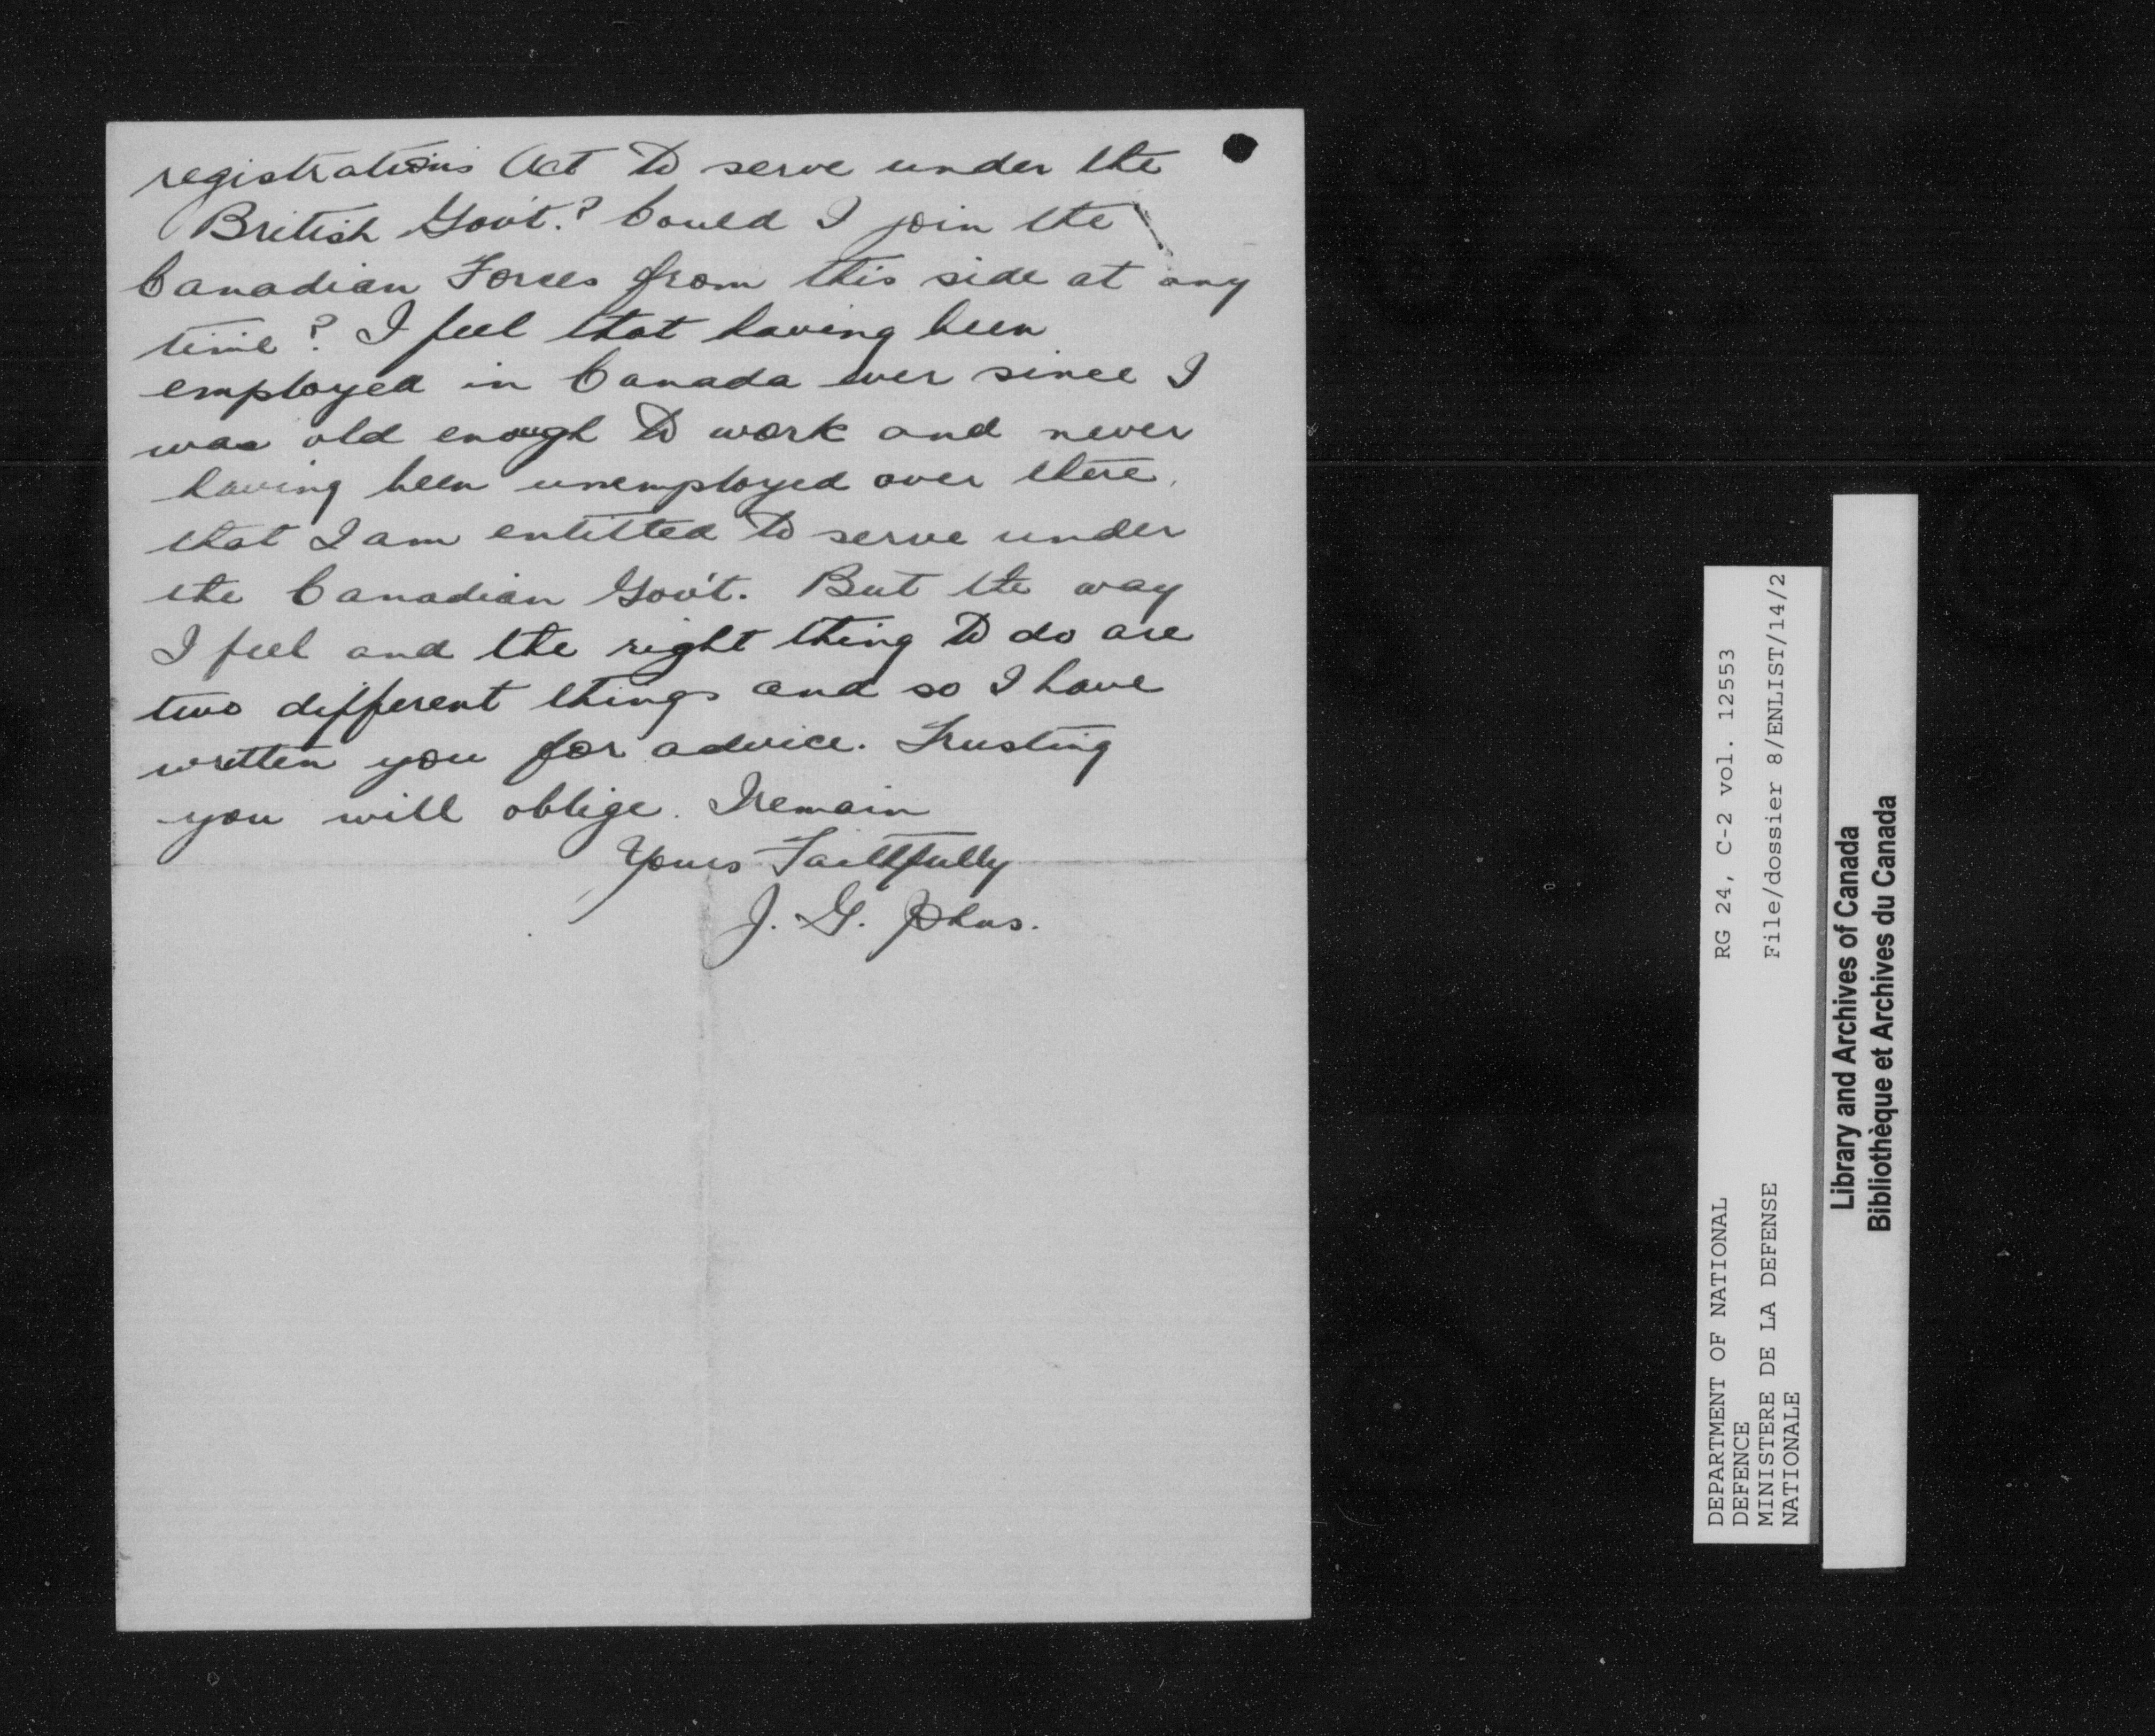 registrations Act to serve under the
British Gov't.? Could I join the
Canadian Forces from this side at any
time? I feel that having been
employed in Canada ever since I
was old enough to work and never
having been unemployed over there,
that I am entitled to serve under
the Canadian Gov't. But the way
I feel and the right thing to do are
two different things and so I have
written you for advice. Trusting
you will oblige. I remain
Yours Faithfully
J. G. Johns.
DEPARTMENT OF NATIONAL
DEFENCE
MINISTERE DE LA DEFENSE
NATIONALE
RG 24, C-2 vol. 12553
File/dossier 8/ENLIST/14/2
Library and Archives of Canada
Bibliothèque et Archives du Canada